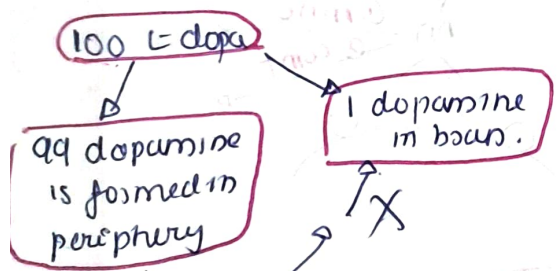 100 L-dopa
99 dopamine
is formed in
periphery
1 dopamine
in brain.
X